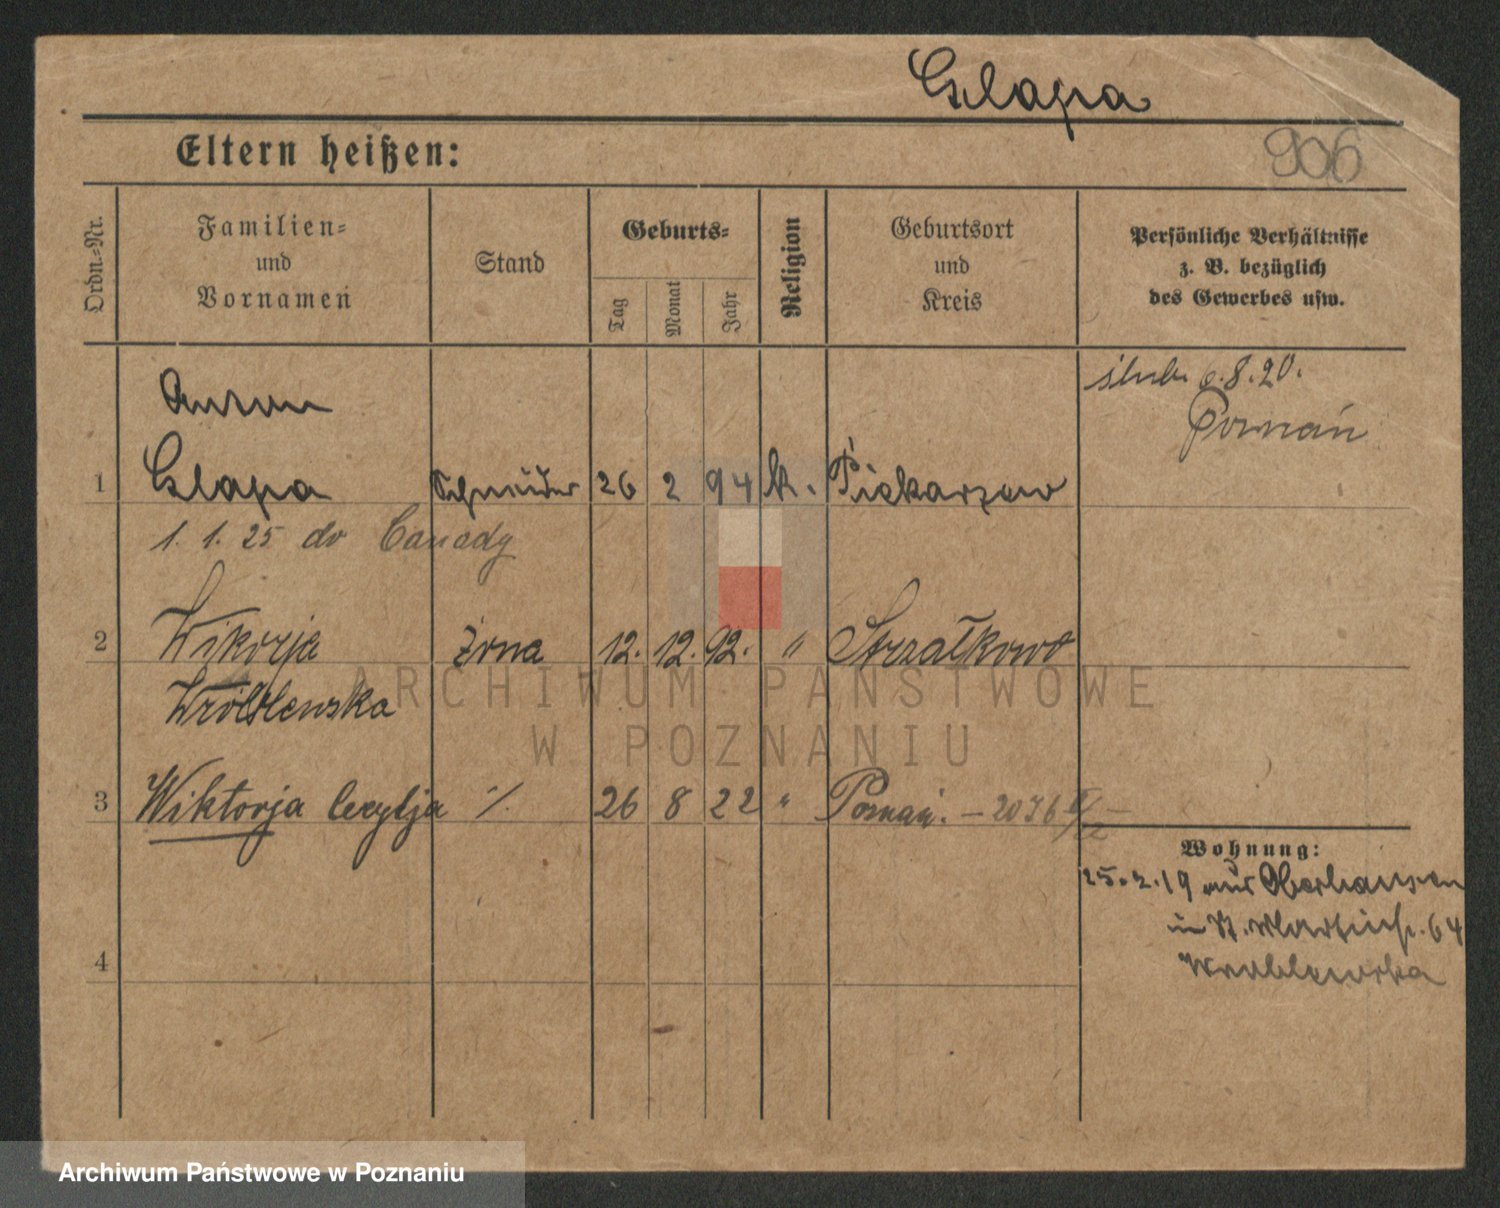 Glapa
906
Eltern heißen:
Ordn.-Nr.
Familien-
und
Vornamen
Stand
Geburts-
Tag
Monat
Jahr
Religion
Geburtsort
und
Kreis
Persönliche Verhältnisse
z. B. bezüglich
des Gewerbes usw.
ślub 6.8.20.
Poznań
Anton
1 Glapa Schneider 26 2 94 k. Piekarzew
1. 1. 25 do Canady
2 Wiktorja żona 12. 12. 92. " Strzałkowo
Wróblewska
3 Wiktorja Cecylja ·/. 26 8 22 " Poznań. — 2076
Wohnung:
25.2.19 aus Oberhausen
in St. Martinstr. 64
Wroblewska
4
ARCHIWUM PAŃSTWOWE
W POZNANIU
Archiwum Państwowe w Poznaniu